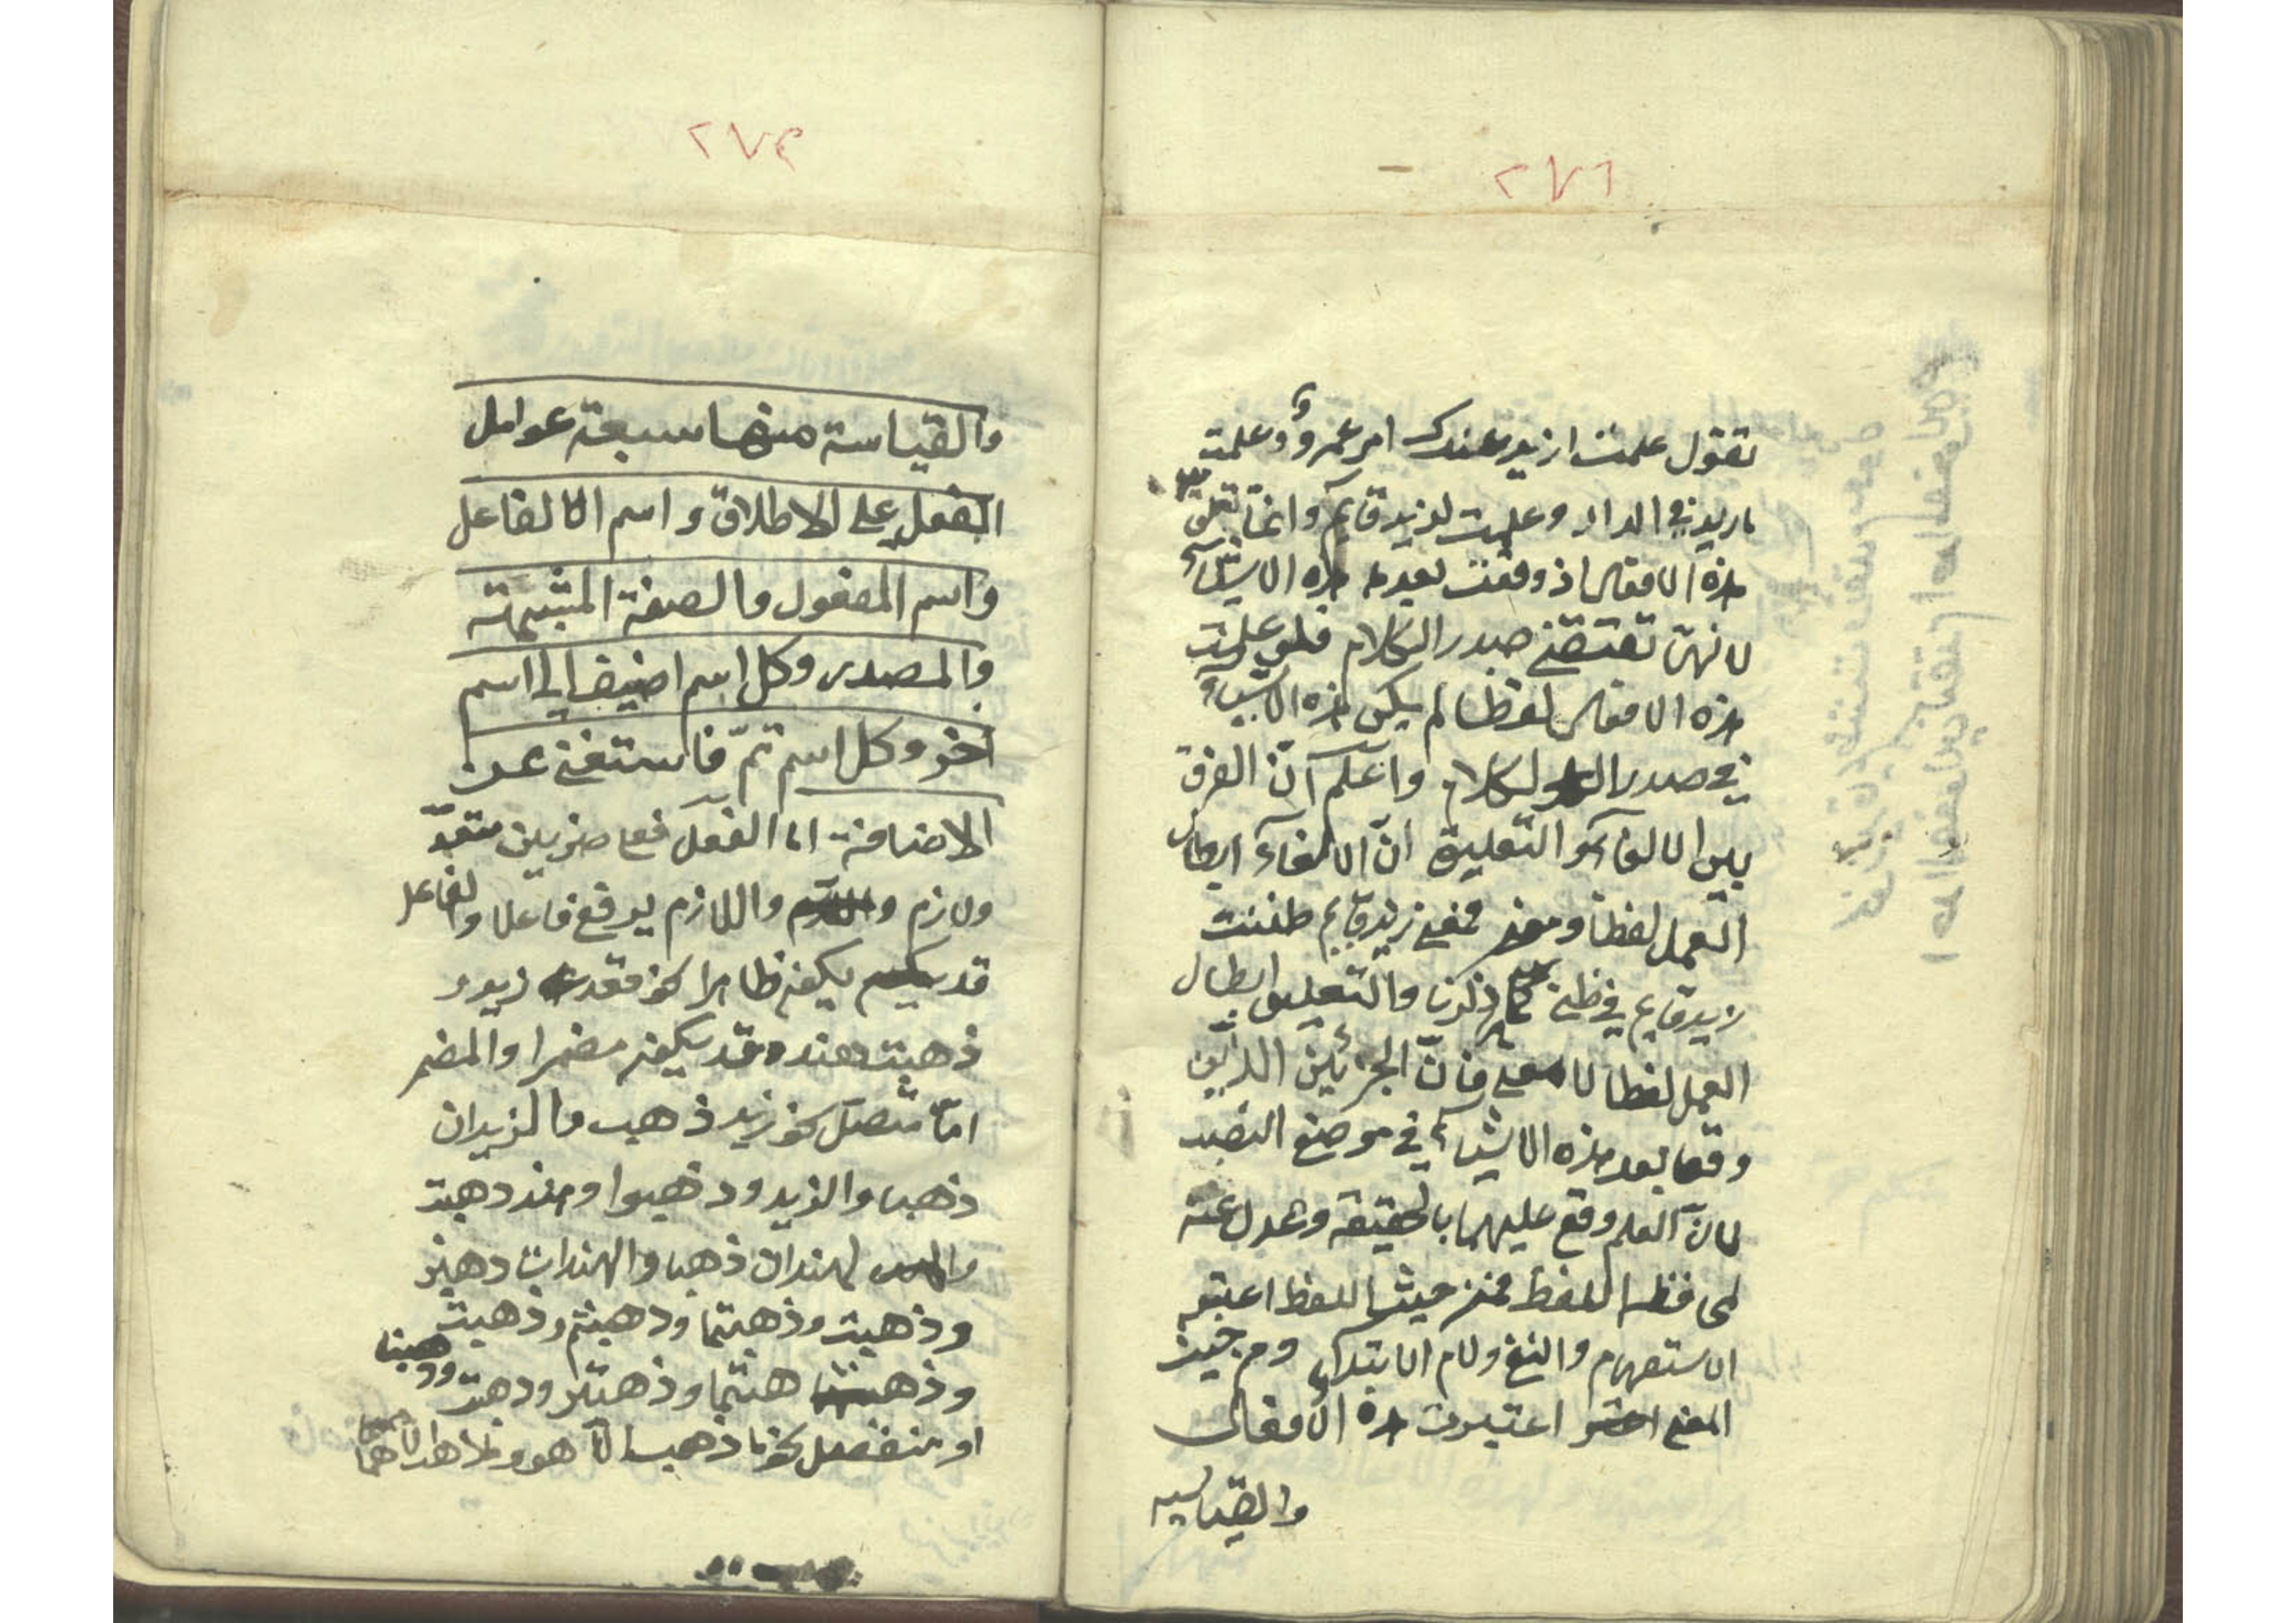 ٢٧٢
تقول علمت ازيد عندك ام عمرو وعلمت
ما زيد في الدار وعلمت لزيد قايم وانما تعلق
هذه الافعال اذ وقعت بعدها هذه الاشياء
لانها تقتضي صدر الكلام فلو علمت
هذه الافعال لفظا لم يكن لهذه الاشياء
في صدر الكلام واعلم انّ الفرق
بين الالغاء والتعليق انّ الالغاء ابطال
العمل لفظا ومعنى فمعنى زيد قايم ظننت
زيد قايم في ظني كما ذكرنا والتعليق ابطال
العمل لفظا لا معنى فانّ الجزئين الذين
وقعا بعد هذه الاشياء في موضع النصب
لانّ العلم وقع عليهما بالحقيقة وعدل عنه
لمحافظة اللفظ فمن حيث اللفظ اعتبر
الاستفهام والنفي ولام الابتداء ومن حيث
المعنى اعتبرت هذه الافعال
والقياسية
٢٧٣
والقياسة منها سبعة عوامل
الفعل على الاطلاق واسم الفاعل
واسم المفعول والصفة المشبهة
والمصدر وكل اسم اضيف الى اسم
آخر وكل اسم تمّ فاستغنى عن
الاضافة اما الفعل فعلى ضربين متعدّ
ولازم واللازم يرفع فاعلا والفاعل
قد يكون ظاهرا نحو قعد زيد و
ذهبت هند وقد يكون مضمرا والمضمر
امّا متصل نحو زيد ذهب والزيدان
ذهبا والزيدون ذهبوا وهند ذهبت
والهندان ذهبا والهندات ذهبن
وذهبت وذهبتما وذهبتم وذهبت
وذهبتما وذهبتن وذهبت وذهبنا
او منفصل نحو ما ذهب الا هو وما هما الا هما